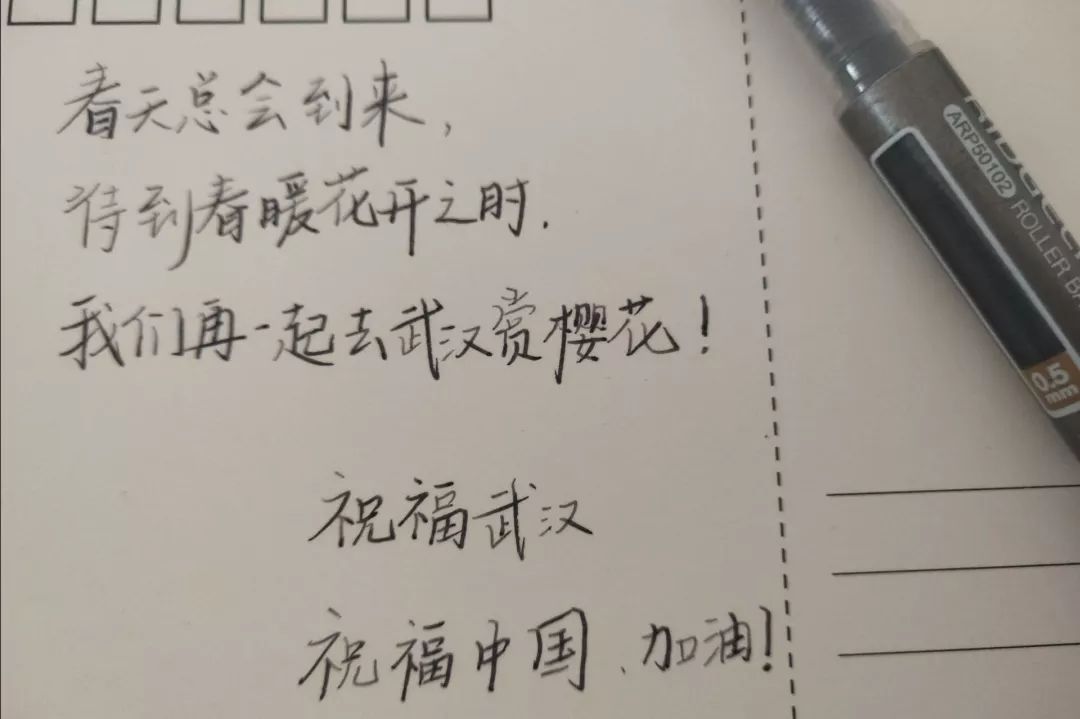 春天总会到来,
待到春暖花开之时.
我们再一起去武汉赏樱花!
祝福武汉
祝福中国、加油!
ARP50102
ROLLER BA
0.5
mm